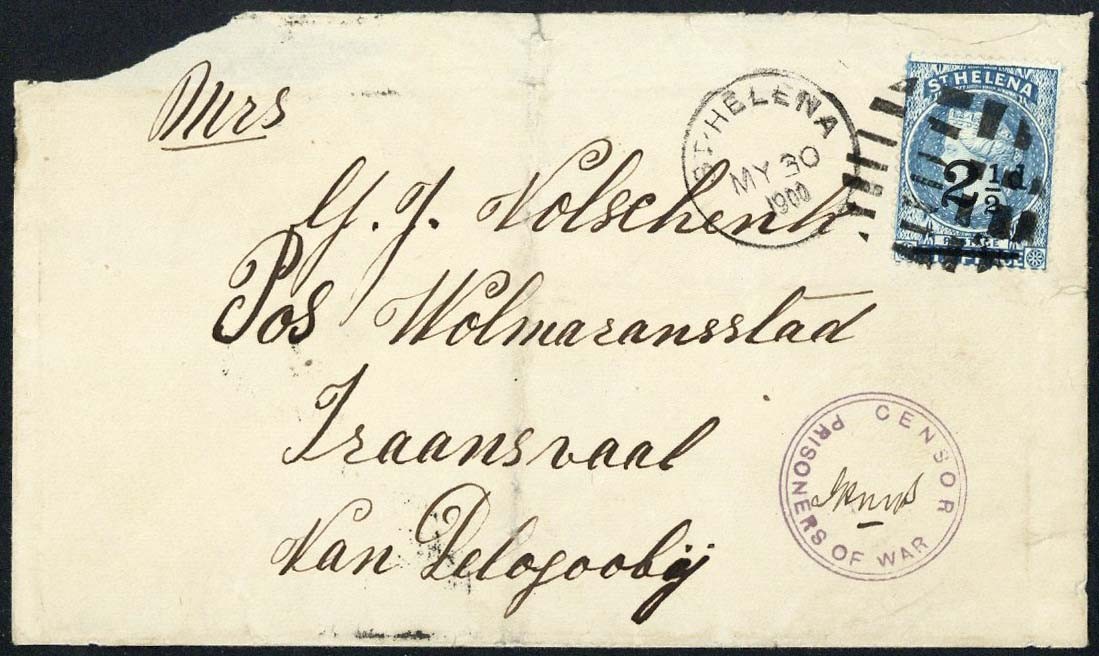 Mrs
G. J. Volschenk
Pos Wolmaransstad
Traansvaal
Van Delogoobij
ST HELENA
MY 30
1900
ST HELENA
2½d
POSTAGE
CENSOR
PRISONERS OF WAR